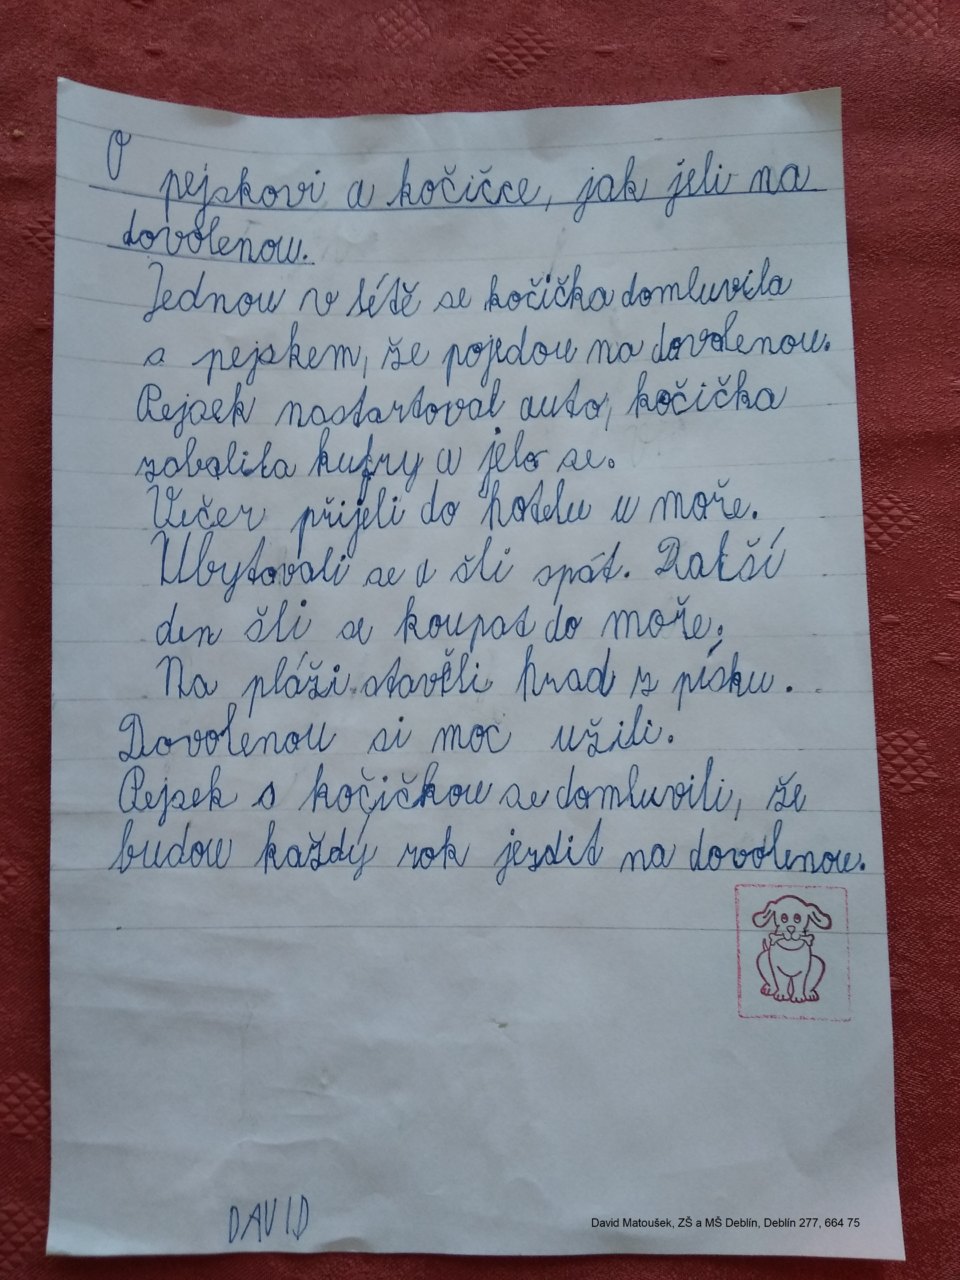 O pejskovi a kočičce, jak jeli na
dovolenou.
Jednou v létě se kočička domluvila
s pejskem, že pojedou na dovolenou.
Pejsek nastartoval auto, kočička
zabalila kufry a jelo se.
Večer přijeli do hotelu u moře.
Ubytovali se a šli spát. Další
den šli se koupat do moře.
Na pláži stavěli hrad z písku.
Dovolenou si moc užili.
Pejsek s kočičkou se domluvili, že
budou každý rok jezdit na dovolenou.
DAVID
David Matoušek, ZŠ a MŠ Deblín, Deblín 277, 664 75